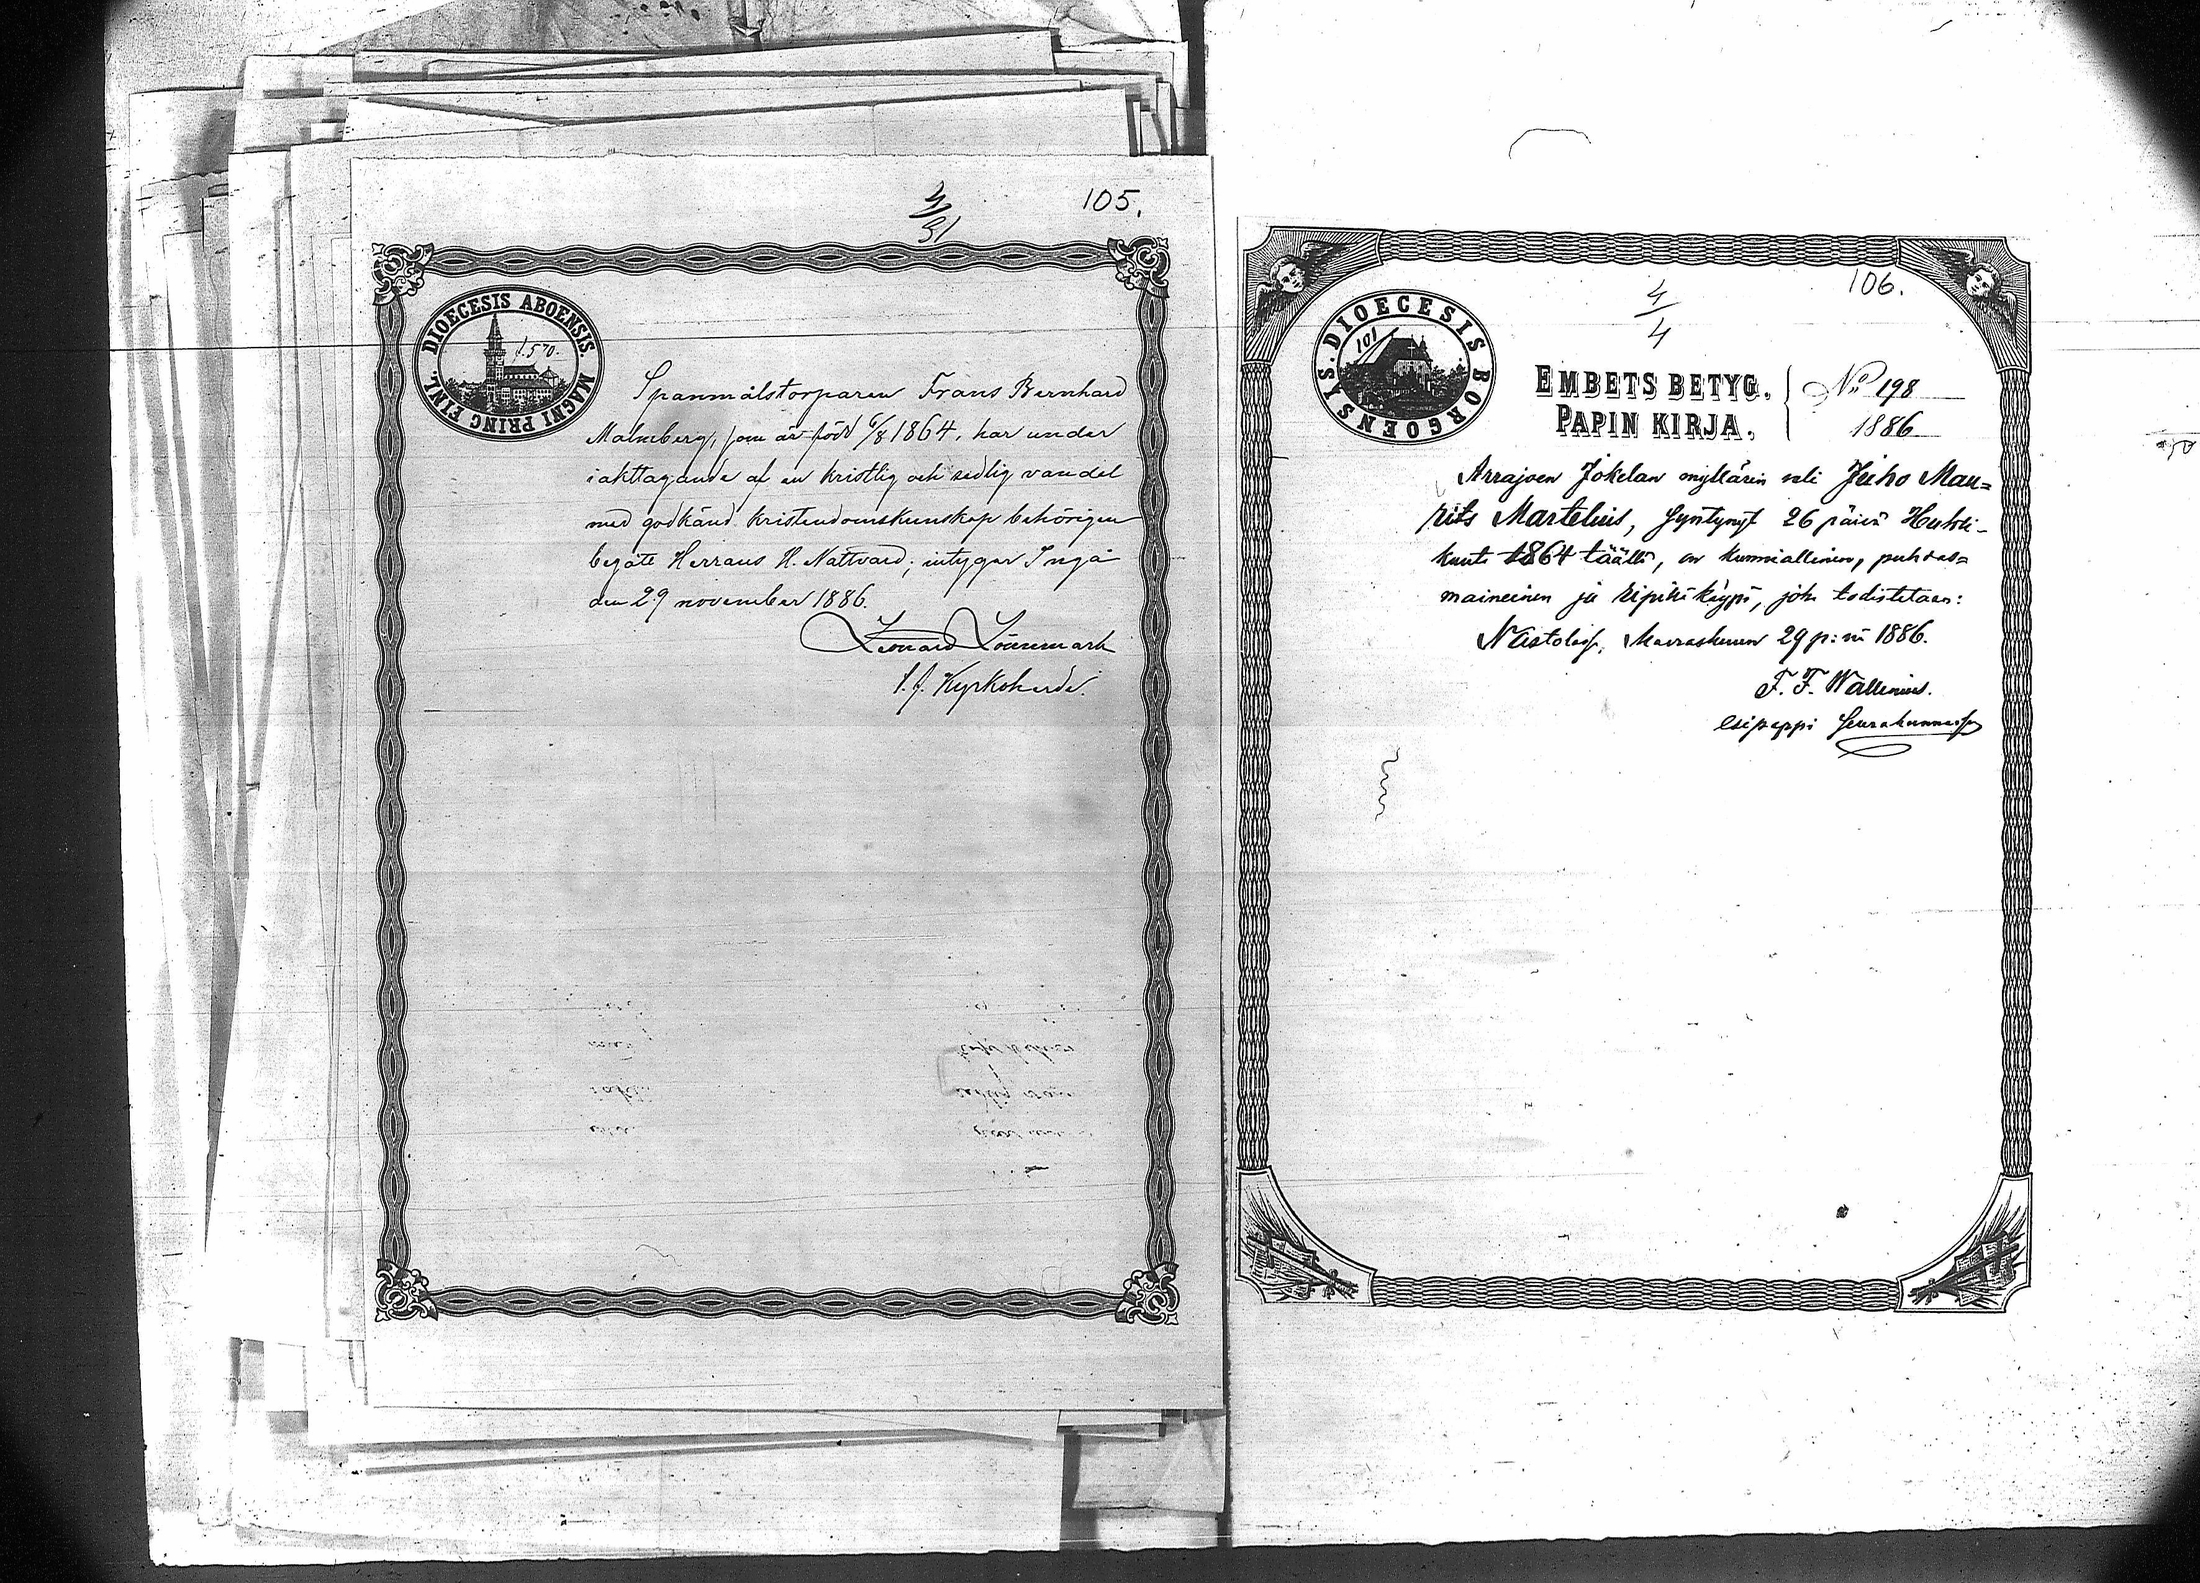 4/31
105.
DIOECESIS ABOENSIS. MAGNI PRINC FINL.
f. 570.
Spanmålstorparen Frans Bernhard
Malmberg, som är född 6/8 1864, har under
iakttagande af en kristlig och sedlig vandel
med godkänd kristendomskunskap behörigen
begått Herrans H. Nattvard; intygar Ingå
den 29 november 1886.
Leonard Lönnmark
Kyrkoherde.
4/4
106.
DIOECESIS BORGOENSIS.
101
EMBETS BETYG. No 198
PAPIN KIRJA. 1886
Arrajoen Jokelan myllärin veli Juho Mau=
rits Martelius, syntynyt 26 päivä Huhti-
kuuta 1864 täällä, on kunniallinen, puhdas=
maineinen ja ripikäypä, joka todistetaan:
Nastolassa, Marraskuun 29 p:nä 1886.
F. F. Wallenius.
esipappi Seurakunnassa